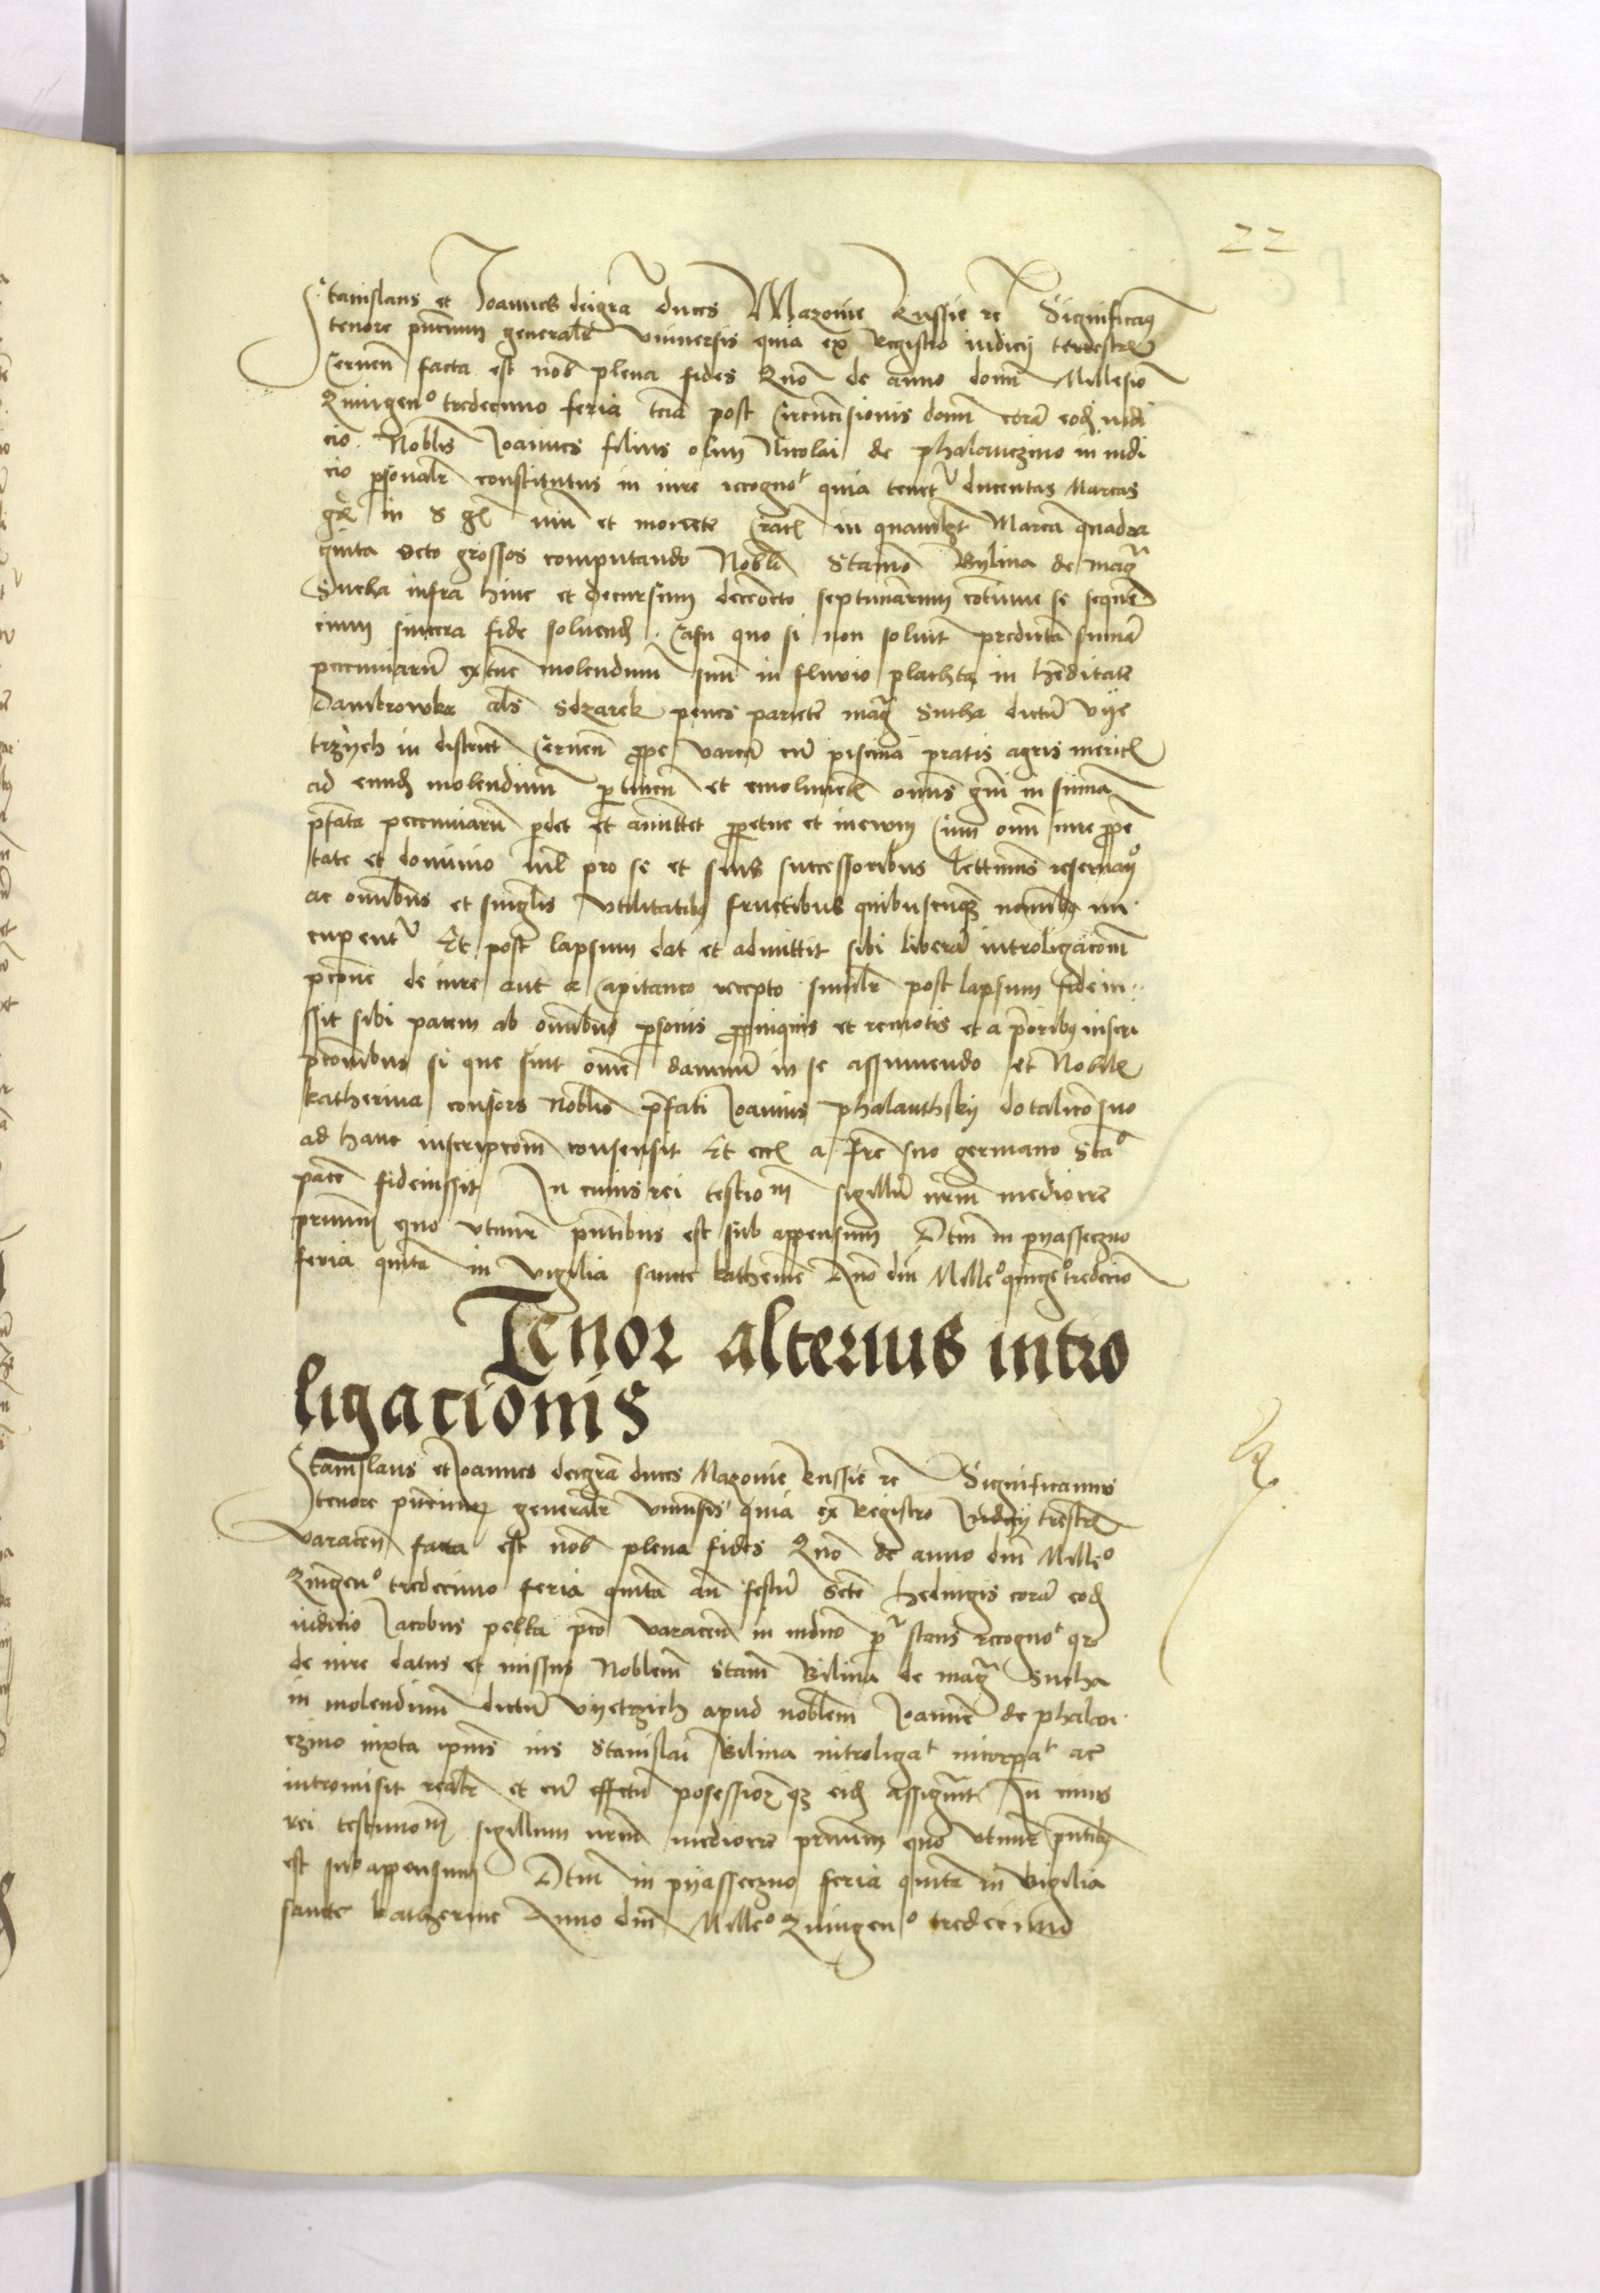 22
Stanislaus et Joannes deigra duces Mazovie Russie rc Significamus
tenore pntium generalr Universis quia ex Registro iudicij terrestris
Cernen facta est nob plena fides Quo de anno domi Millesio
Quingeno tredecimo feria tcia post Circucisionis domi cora eod iudi
cio Noblis Joannes filius olim Nicolai de phalanczino in iudi
cio psonalr constitutus in iure recogno quia tenet ducentas Marcas
in et monete in quamlet Marca quadra
ginta Octo grossos computando Nobli Stano Bylina de mag
Sucha infra hinc et decursum deceocto septimanarum cotinue se sequen
cium sincera fide solvend Casu quo si non solvit predicta suma
pecuniaru extuc molendinum suu in fluvio plachta in heditate
Dambrowka als Sdzarek penes pariete mag Sucha dictu Vije
trzych in district Cernen ppe varca cu piscina pratis agris mericis
ad eund molendinum ptinen et emolumet omis gnis in suma
pfata pecuniaru pdet et amittet ppetue et inevum Cum omi iure ppe
tate et dominio nil pro se et suis successoribus lettimis reservan
ac omibus et singlis Utilitatibus fructibus quibuscumque nominibus nu
cupentur Et post lapsum dat et admittit sibi libera introligacom
pcone de iure aut a Capitaneo recepto similr post lapsum fidein
ssit sibi pacem ab omibus psonis ppinquis et remotis et a prioribus inscri
pconibus si que sint ome damnu in se assumendo et Nobilis
katherina consors Noblis pfati Joannis phalanthskij dotalico suo
ad hanc inscripcom consensit Et eciam a fre suo germano Sta
pace fideiussit In cuius rei testiom sigillu nrm mediocre
primum quo utimur pntibus est sub appensum Dtm in pyasseczno
feria quinta in Vigilia sancte katherine Ano dni Milleo quingeo tredecio
Tenor alterius intro
ligacionis
Stanislaus et Joannes deigra duces Mazovie Russie rc Significamus
tenore pncium generalr Univsis quia ex Registro Judicij trestris
Varacen facta est nob plena fides Quo de anno dni Milleo
Quingeno tredecimo feria quinta an festu Scte Hedvigis cora eod
iudicio Jacobus pella pco Varacen in iudico p stans recogno qr
de iure datus et missus Noblem Stam Bilina de mag Sucha
in molendinum dictu Vijetrzich apud noblem Joanne de phalen
czino iuxta ipius ius Stanislai Bilina introligat incorpat ac
intromisit realr et cu effctu posession eid assignavit In cuius
rei testimom sigillum nrm mediocre primum quo utimur pntibus
est sub appensum Dtm in pyasseczno feria quinta in Vigilia
sancte katherine Anno dni Milleo Quingeno tredecimo